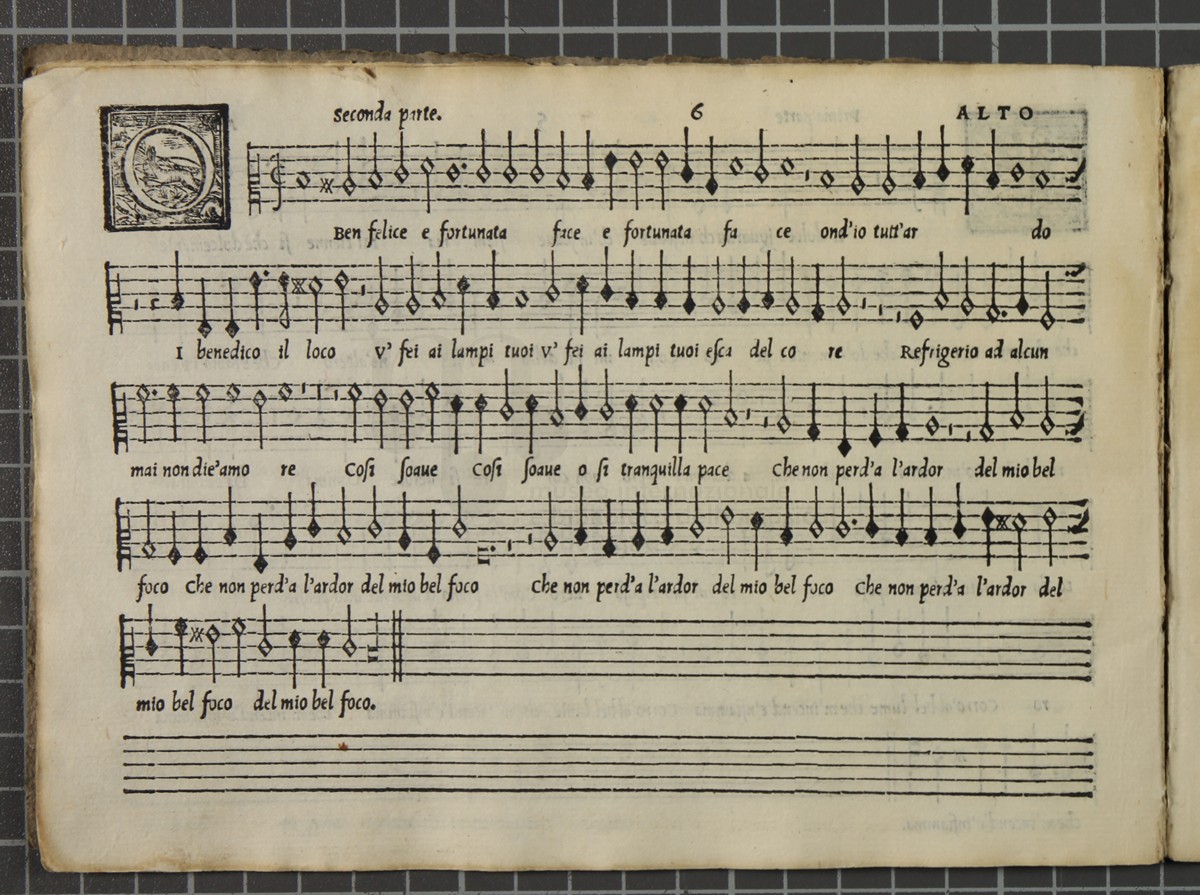 Seconda parte. 6 ALTO
O Ben felice e fortunata face e fortunata fa ce ond'io tutt'ar do
I benedico il loco V' fei ai lampi tuoi V' fei ai lampi tuoi esca del co re Refrigerio ad alcun
mai non die'amo re Cosi soaue Cosi soaue o si tranquilla pace Che non perd'a l'ardor del mio bel
foco Che non perd'a l'ardor del mio bel foco Che non perd'a l'ardor del mio bel foco Che non perd'a l'ardor del
mio bel foco del mio bel foco.